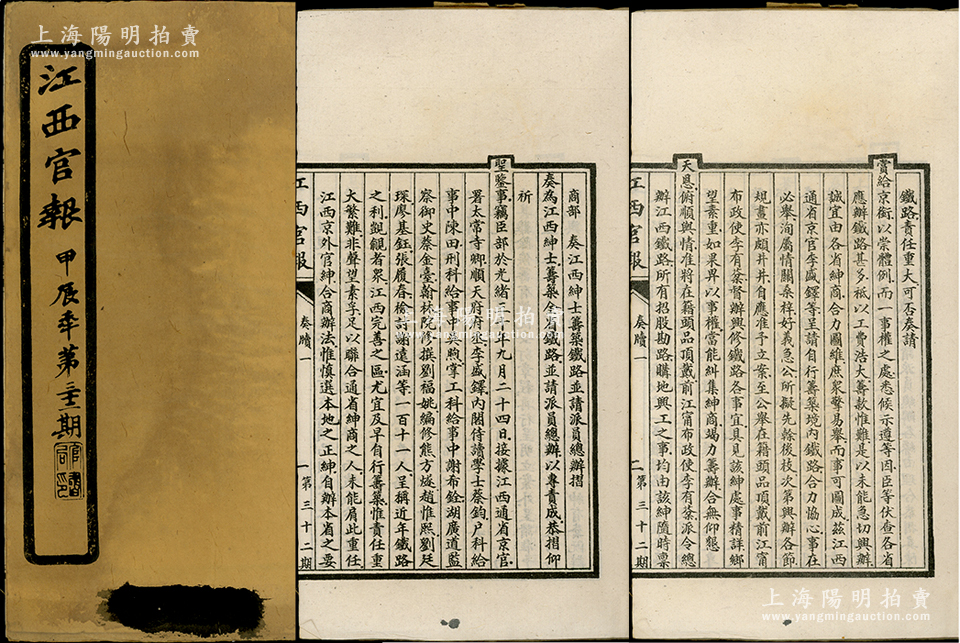 上海陽明拍賣
www.yangmingauction.com
江西官報 甲辰年第三十二期
官書局印
商部 奏江西紳士籌築鐵路並請派員總辦摺
奏為江西紳士籌築全省鐵路並請派員總辦以專責成恭摺仰
祈
聖鑒事竊臣部於光緒三十年九月二十四日接據江西通省京官
署太常寺卿順天府府丞李盛鐸內閣侍讀學士蔡鈞戶科給
事中陳田刑科給事中吳煦掌工科給事中謝希銓湖廣道監
察御史蔡金臺翰林院修撰劉福姚編修熊方燧趙惟熙劉廷
琛廖基鈺張履春檢討謝遠涵等一百十一人呈稱近年鐵路
之利覬覦者眾江西完善之區尤宜及早自行籌築惟責任重
大繁難非聲望素孚足以聯合通省紳商之人未能肩此重任
江西京外官紳合商辦法惟慎選本地之正紳自辦本省之要
江西官報
奏牘一
一
第三十二期
上海陽明拍賣
www.yangmingauction.com
鐵路責任重大可否奏請
賞給京銜以崇體例而一事權之處悉候示遵等因臣等伏查各省
應辦鐵路甚多祗以工費浩大籌款惟難是以未能急切興辦
誠宜由各省紳商合力圖維庶眾擎易舉而事可圖成茲江西
通省京官李盛鐸等呈請自行籌築境內鐵路合力協心事在
必舉洵屬情關桑梓好義急公所擬先幹後枝次第興辦各節
規畫亦頗井井自應准予立案至公舉在籍頭品頂戴前江甯
布政使李有棻督辦興修鐵路各事宜具見該紳處事精詳鄉
望素重如果畀以事權當能糾集紳商竭力籌辦合無仰懇
天恩俯順輿情准將在籍頭品頂戴前江甯布政使李有棻派令總
辦江西鐵路所有招股勘路購地興工之事均由該紳隨時稟
江西官報
奏牘一
二
第三十二期
上海陽明拍賣
www.yangmingauction.com